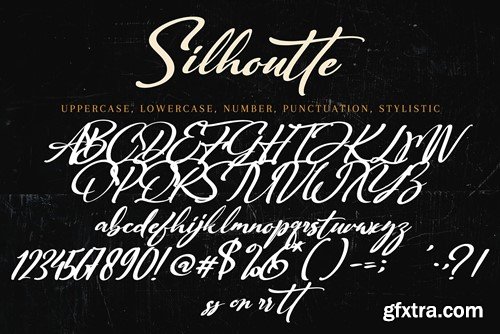 Silhoutte
UPPERCASE, LOWERCASE, NUMBER, PUNCTUATION, STYLISTIC
ABCDEFGHIJKLMN
OPQRSTUVWXYZ
abcdefghijklmnopqrstuvwxyz
1234567890!@#$%&*()-=:;'.,?/
ss on rr tt
gfxtra.com